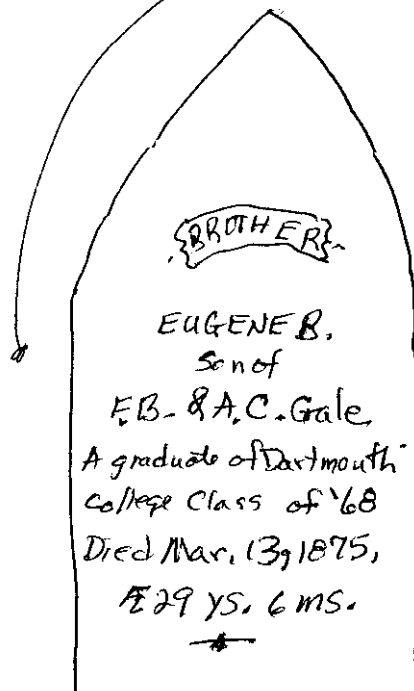 BROTHER
EUGENE B.
Son of
F.B. & A.C. Gale
A graduate of Dartmouth
College Class of '68
Died Mar. 13, 1875,
Æ 29 ys. 6 ms.